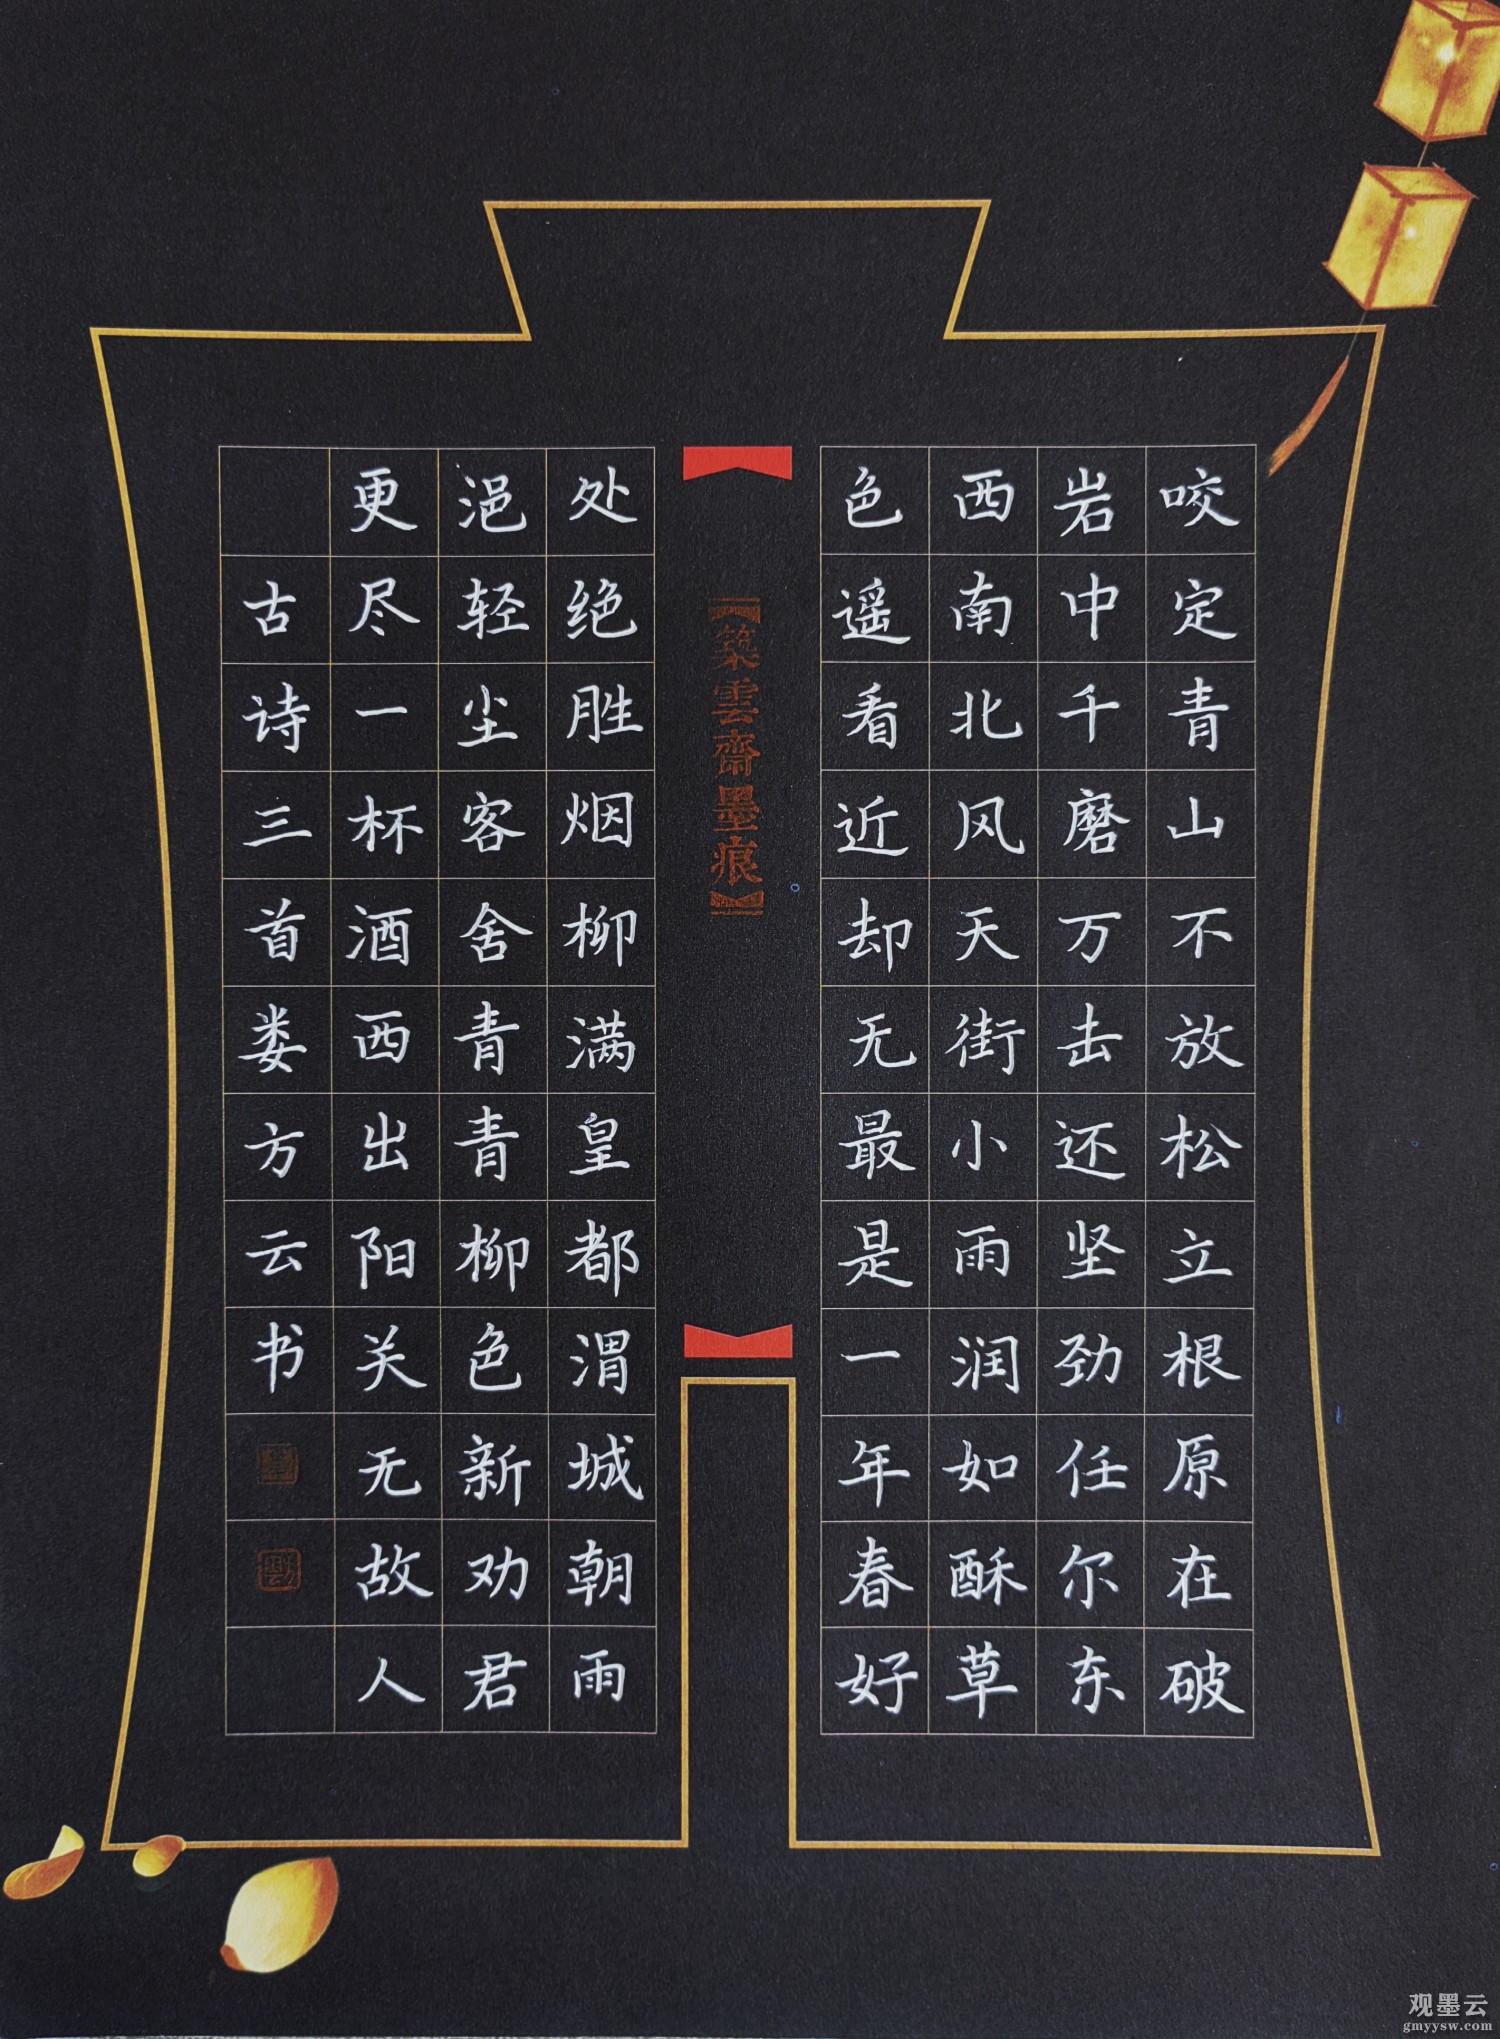 咬定青山不放松立根原在破
岩中千磨万击还坚劲任尔东
西南北风天街小雨润如酥草
色遥看近却无最是一年春好
【築雲齋墨痕】
处绝胜烟柳满皇都渭城朝雨
浥轻尘客舍青青柳色新劝君
更尽一杯酒西出阳关无故人
古诗三首娄方云书
观墨云
gmyysw.com